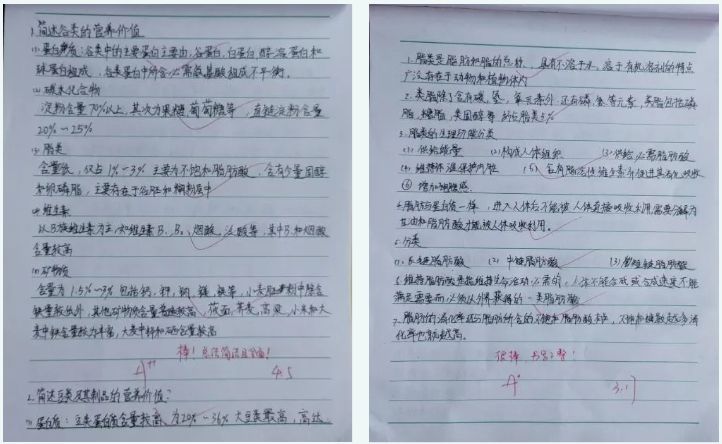 1.简述谷类的营养价值
(1)蛋白质:谷类中的主要蛋白主要由:谷蛋白,白蛋白,醇溶蛋白和
球蛋白组成,谷类蛋白中所含必需氨基酸组成不平衡。
(2)碳水化合物
淀粉含量70%以上,其次为果糖,葡萄糖等,直链淀粉含量
20%~25%
(3)脂类
含量低,仅占1%~3%主要为不饱和脂肪酸,含有少量固醇
和卵磷脂,主要存在于谷胚和糊粉层中
(4)维生素
以B族维生素为主,如维生素B₁、B₂、烟酸、泛酸等,其中B₁和烟酸
含量较高
(5)矿物质
含量为1.5%~3%包括钙、钾、钠、镁、铁等,小麦胚粉中除含
铁量较低外,其他矿物质含量普遍较高,莜面、荞麦、高粱、小米和大
麦中铁含量较为丰富,大麦中锌和硒含量较高
棒!总结简洁且全面!
A⁺⁺
4.5
2.简述豆类及其制品的营养价值?
(1)蛋白质:豆类蛋白质含量较高,为20%~36%大豆最高,高达
1.脂类是脂肪和脂的总称,具有不溶于水,溶于有机溶剂的特点
广泛存在于动物和植物体内
2.类脂除了含有碳、氢、氧元素外,还有磷、氮等元素,类脂包括磷
脂、糖脂、类固醇等 约占脂类5%
3.脂类的生理功能分类
(1)供给能量 (2)构成人体组织 (3)供给必需脂肪酸
(4)维持体温保护内脏 (5)
⑥增加饱腹感
4.脂肪与蛋白质一样,进入人体后不能被人体直接吸收利用,需要分解为
甘油和脂肪酸才能被人体吸收利用。
5.分类
(1)长链脂肪酸 (2)中链脂肪酸 (3)短链脂肪酸
满足需要而必须从外界获得的一类脂肪酸
化率也就越高。
很棒
A⁺
3.17